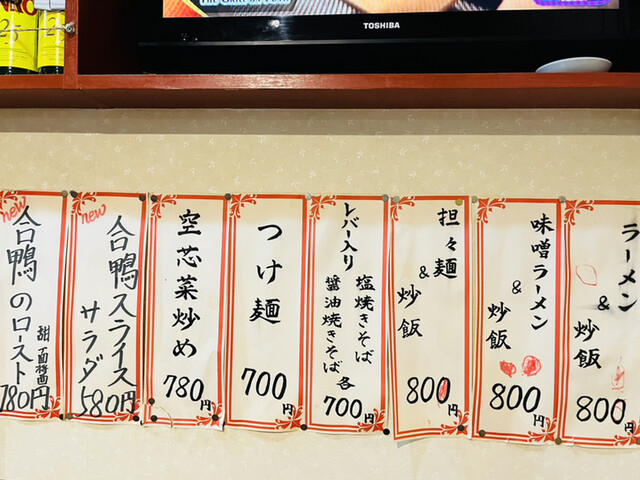 TOSHIBA
ラーメン
&
炒飯
800円
味噌ラーメン
&
炒飯
800円
担々麺
&
炒飯
800円
レバー入り
塩焼きそば
醤油焼きそば
各
700円
つけ麺
700円
空芯菜炒め
780円
new
合鴨スライス
サラダ
580円
new
合鴨のロースト
780円